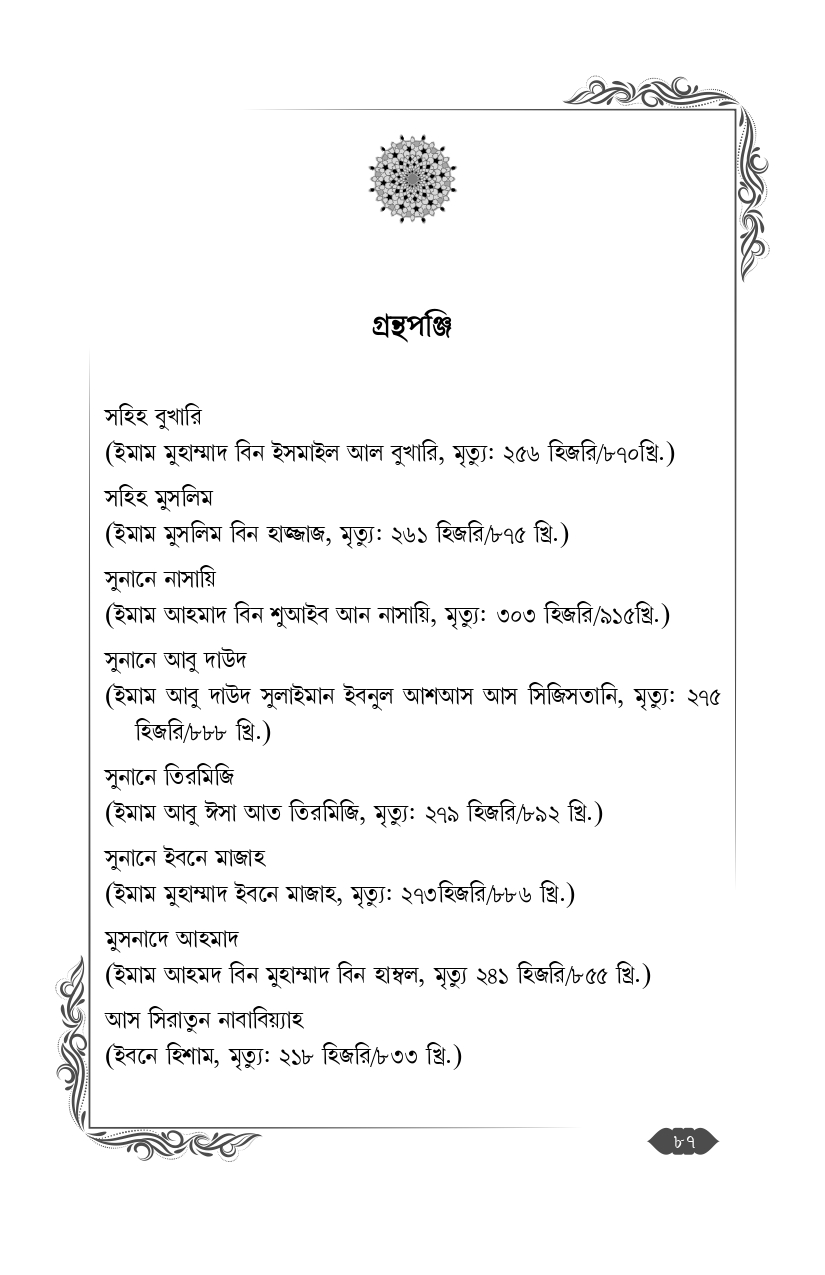 গ্রন্থপঞ্জি
সহিহ বুখারি
(ইমাম মুহাম্মাদ বিন ইসমাইল আল বুখারি, মৃত্যু: ২৫৬ হিজরি/৮৭০খ্রি.)
সহিহ মুসলিম
(ইমাম মুসলিম বিন হাজ্জাজ, মৃত্যু: ২৬১ হিজরি/৮৭৫ খ্রি.)
সুনানে নাসায়ি
(ইমাম আহমাদ বিন শুআইব আন নাসায়ি, মৃত্যু: ৩০৩ হিজরি/৯১৫খ্রি.)
সুনানে আবু দাউদ
(ইমাম আবু দাউদ সুলাইমান ইবনুল আশআস আস সিজিসতানি, মৃত্যু: ২৭৫
হিজরি/৮৮৮ খ্রি.)
সুনানে তিরমিজি
(ইমাম আবু ঈসা আত তিরমিজি, মৃত্যু: ২৭৯ হিজরি/৮৯২ খ্রি.)
সুনানে ইবনে মাজাহ
(ইমাম মুহাম্মাদ ইবনে মাজাহ, মৃত্যু: ২৭৩হিজরি/৮৮৬ খ্রি.)
মুসনাদে আহমাদ
(ইমাম আহমদ বিন মুহাম্মাদ বিন হাম্বল, মৃত্যু ২৪১ হিজরি/৮৫৫ খ্রি.)
আস সিরাতুন নাবাবিয়্যাহ
(ইবনে হিশাম, মৃত্যু: ২১৮ হিজরি/৮৩৩ খ্রি.)
৮৭